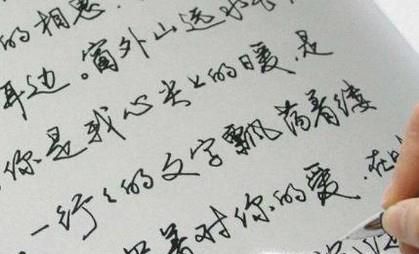 的相思
耳边。窗外山远水
你是我心尖上的暖,是
一行行的文字飘荡着缕
着对你的爱.在